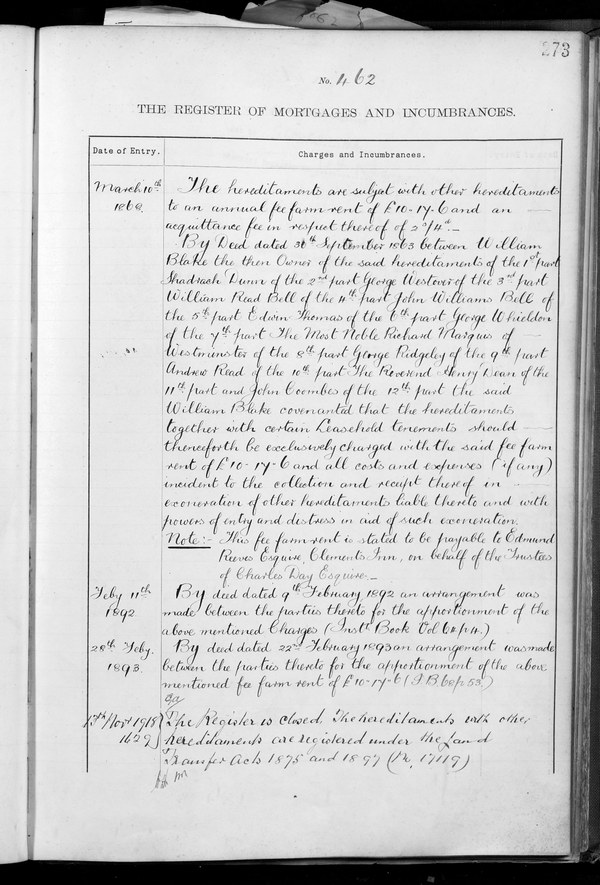 273
No. 462
THE REGISTER OF MORTGAGES AND INCUMBRANCES.
Date of Entry.
Charges and Incumbrances.
March 10th
1869.
The hereditaments are subject with other hereditaments
to an annual fee farm rent of £10-17-6 and an
acquittance fee in respect thereof of 2s/4d.
By Deed dated 30th September 1863 between William
Blake the then Owner of the said hereditaments of the 1st part
Shadrach Dunn of the 2nd part George Westover of the 3rd part
William Read Bell of the 4th part John Williams Bell of
the 5th part Edwin Thomas of the 6th part George Whieldon
of the 7th part The Most Noble Richard Marquis of
Westminster of the 8th part George Ridgeley of the 9th part
Andrew Read of the 10th part The Reverend Henry Dean of the
11th part and John Coombes of the 12th part the said
William Blake covenanted that the hereditaments
together with certain Leasehold tenements should
thenceforth be exclusively charged with the said fee farm
rent of £10-17-6 and all costs and expenses (if any)
incident to the collection and receipt thereof in
exoneration of other hereditaments liable thereto and with
powers of entry and distress in aid of such exoneration.
Note:- This fee farm rent is stated to be payable to Edmund
Reeves Esquire, Clements Inn, on behalf of the Trustees
of Charles Day Esquire.
Feby 11th
1892.
By deed dated 9th February 1892 an arrangement was
made between the parties thereto for the apportionment of the
above mentioned Charges (Instt Book Vol 64 p 4.)
28th Feby.
1893.
By deed dated 22nd February 1893 an arrangement was made
between the parties thereto for the apportionment of the above
mentioned fee farm rent of £10-17-6 (I.B. 68 p 53.)
13th Novr 1918
1629
The Register is closed. The hereditaments with other
hereditaments are registered under the Land
Transfer Acts 1875 and 1897 (No. 17119)